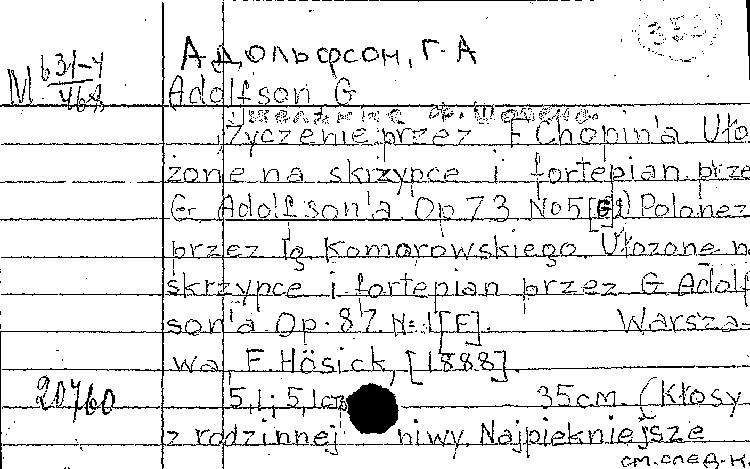 353
Адольфсон, Г. А
M 631-4
468
Adolfson G
Życzenie przez F Chopin'a Uło
żone na skrzypce i fortepian prze
G Adolfson'a Op 73 No 5 Polonez
przez Ig Komorowskiego. Ułozone n
skrzypce i fortepian przez G Adolf
son'a Op. 87. No 1 [E]. Warsza-
wa, F. Hösick, [1888].
20760
5,1; 5,1 35cm. (Kłosy
z rodzinnej niwy. Najpiekniejsze
см. след. к.